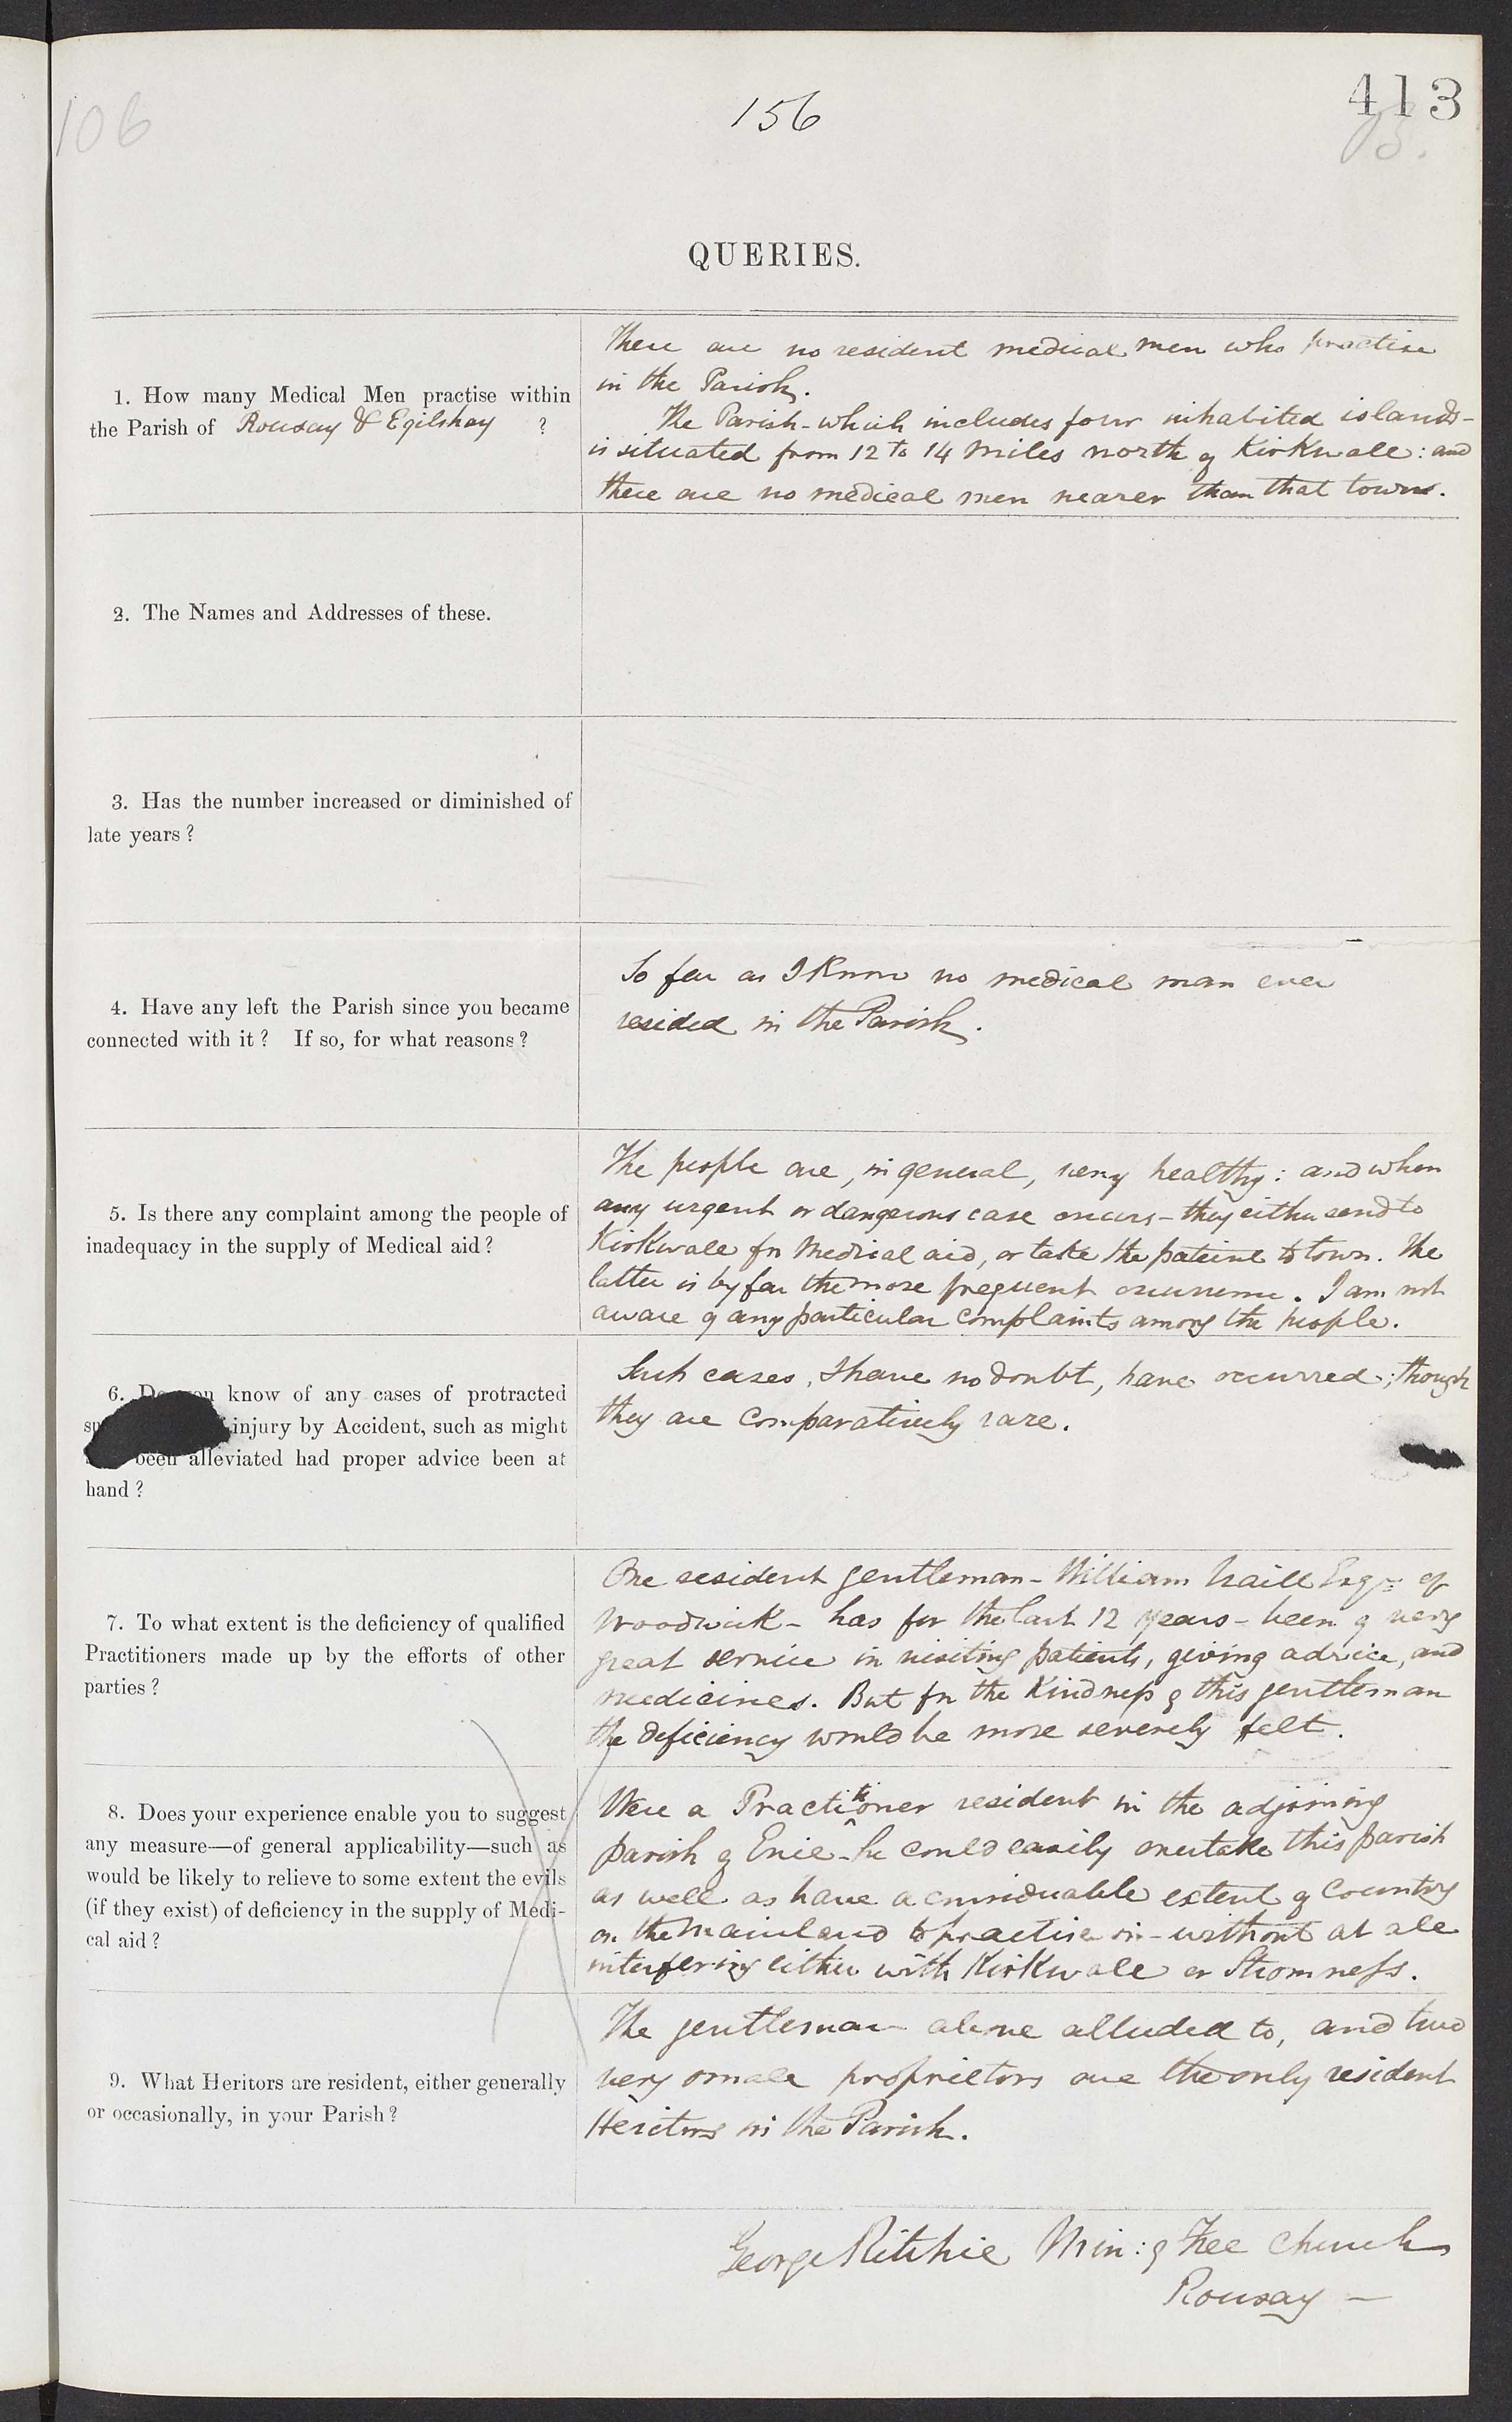 106
156
413
QUERIES.
1. How many Medical Men practise within
the Parish of Rousay & Egilshay ?
There are no resident medical men who practise
in the Parish.
The Parish - which includes four inhabited islands -
is situated from 12 to 14 miles north of Kirkwall: and
there are no medical men nearer than that town.
2. The Names and Addresses of these.
3. Has the number increased or diminished of
late years?
4. Have any left the Parish since you became
connected with it? If so, for what reasons?
So far as I know no medical man ever
resided in the Parish.
5. Is there any complaint among the people of
inadequacy in the supply of Medical aid?
The people are, in general, very healthy: and when
any urgent or dangerous case occurs - they either send to
Kirkwall for Medical aid, or take the patient to town. The
latter is by far the more frequent occurrence. I am not
aware of any particular complaints among the people.
6. know of any cases of protracted
injury by Accident, such as might
been alleviated had proper advice been at
hand?
Such cases, I have no doubt, have occurred; though
they are comparatively rare.
7. To what extent is the deficiency of qualified
Practitioners made up by the efforts of other
parties?
One resident gentleman - William Traill Esqr. of
Woodwick - has for the last 12 years - been of very
great service in visiting patients, giving advice, and
medicines. But for the kindness of this gentleman
the deficiency would be more severely felt.
8. Does your experience enable you to suggest
any measure—of general applicability—such as
would be likely to relieve to some extent the evils
(if they exist) of deficiency in the supply of Medi-
cal aid?
Were a Practitioner resident in the adjoining
parish of Evie - he could easily overtake this parish
as well as have a considerable extent of Country
on the Mainland to practise in - without at all
interfering either with Kirkwall or Stromness.
9. What Heritors are resident, either generally
or occasionally, in your Parish?
The gentleman above alluded to, and two
very small proprietors are the only resident
Heritors in the Parish.
George Ritchie Min: of Free Church
Rousay —